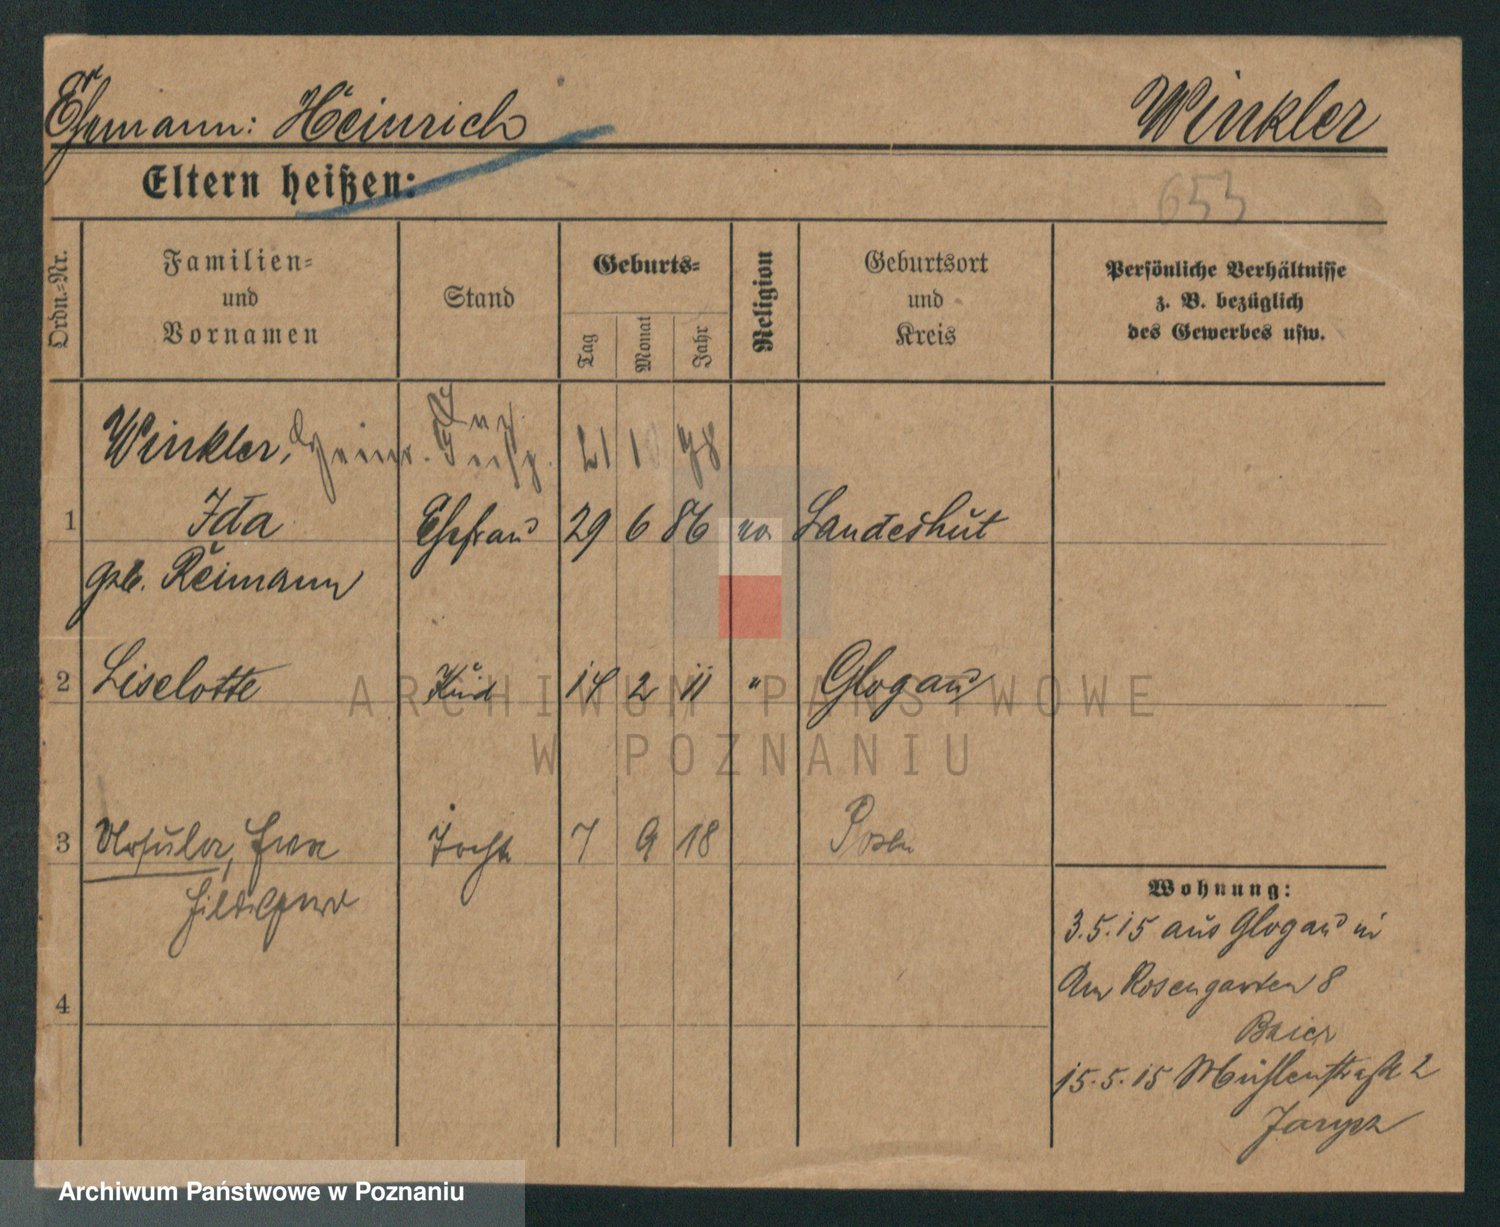 Ehemann: Heinrich Winkler
Eltern heißen:
653
Ordn.-Nr.
Familien- und Vornamen
Stand
Geburts-
Tag
Monat
Jahr
Religion
Geburtsort und Kreis
Persönliche Verhältnisse
z. B. bezüglich
des Gewerbes usw.
Winkler, Heinr. 21 1 78
1 Ida Ehefrau 29 6 86 Landeshut
geb. Reimann
2 Liselotte Kind 14 2 11 " Glogau
3 Ursula, Eva Tocht 7 9 18 Posen
Hildegard
4
Wohnung:
3.5.15 aus Glogau in
Am Rosengarten 8
Baier
15.5.15 Mühlenstraße 2
ARCHIWUM PAŃSTWOWE
W POZNANIU
Archiwum Państwowe w Poznaniu